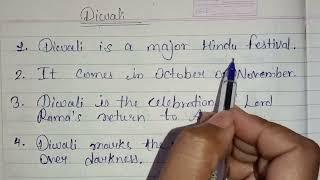 Diwali
1. Diwali is a major Hindu festival.
2. It comes in October or November.
3. Diwali is the celebration Lord
Rama's return to
4. Diwali marks the
over darkness.